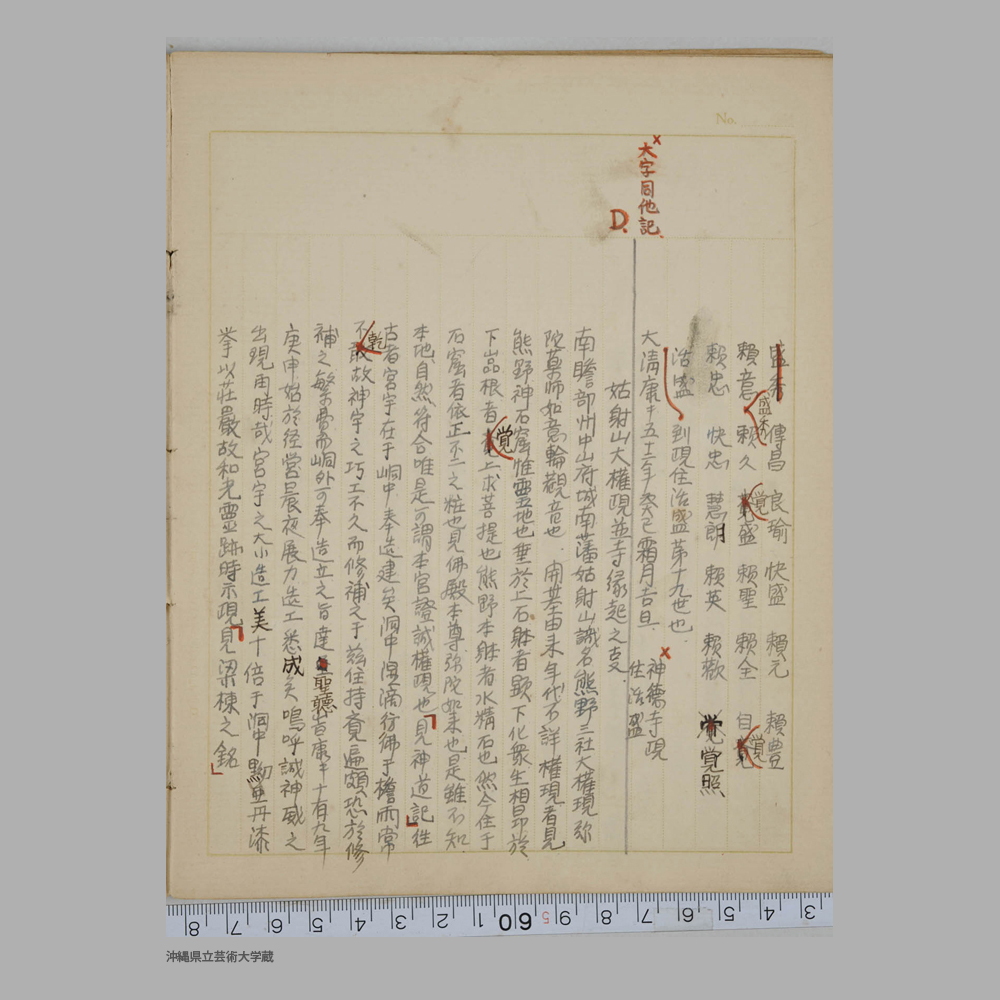 No.
大字同他記
D.
盛秀 傳昌 良瑜 快盛 頼元 頼豊
頼意 頼久 覚盛 頼聖 頼全 自覚
盛秀
覚
覚
頼忠 快忠 慧朗 頼英 頼歡 覚照
浩盛 到現住浩盛第十九世也
大清康煕五十二年癸巳霜月吉旦 神徳寺現住浩盛
姑射山大權現並寺縁起之支
南瞻部州中山府城南藩姑射山識名熊野三社大權現弥
陀薬師如意輪觀音也 開基由来年代不詳 權現者見
熊野神石窟惟靈地也垂於上石躰者顕下化衆生相昂於
下品根者覚上求菩提也熊野本躰者水精石也然今住于
石窟者依正不二之粧也見佛殿本尊弥陀如来也是雖不知
本地自然符合唯是可謂本宮證誠權現也見神道記往
古者宮宇在于峒中奉造建矣洞中湿滴彷彿于檐雨常
不乾故神宇之巧工不久而修補之于茲住持覚遍頗恐於修
補之繁費而峒外可奉造立之旨達聖聽昔康煕十有九年
庚申姑於径営晨夜展力造工悉成矣嗚呼誠神威之
出現由時哉宮宇之大小造工美十倍于洞中黝堊丹漆
挙以荘嚴故和光靈跡時示現見梁棟之銘
8 7 6 5 4 3 2 1 60 9 8 7 6 5 4 3
沖縄県立芸術大学蔵